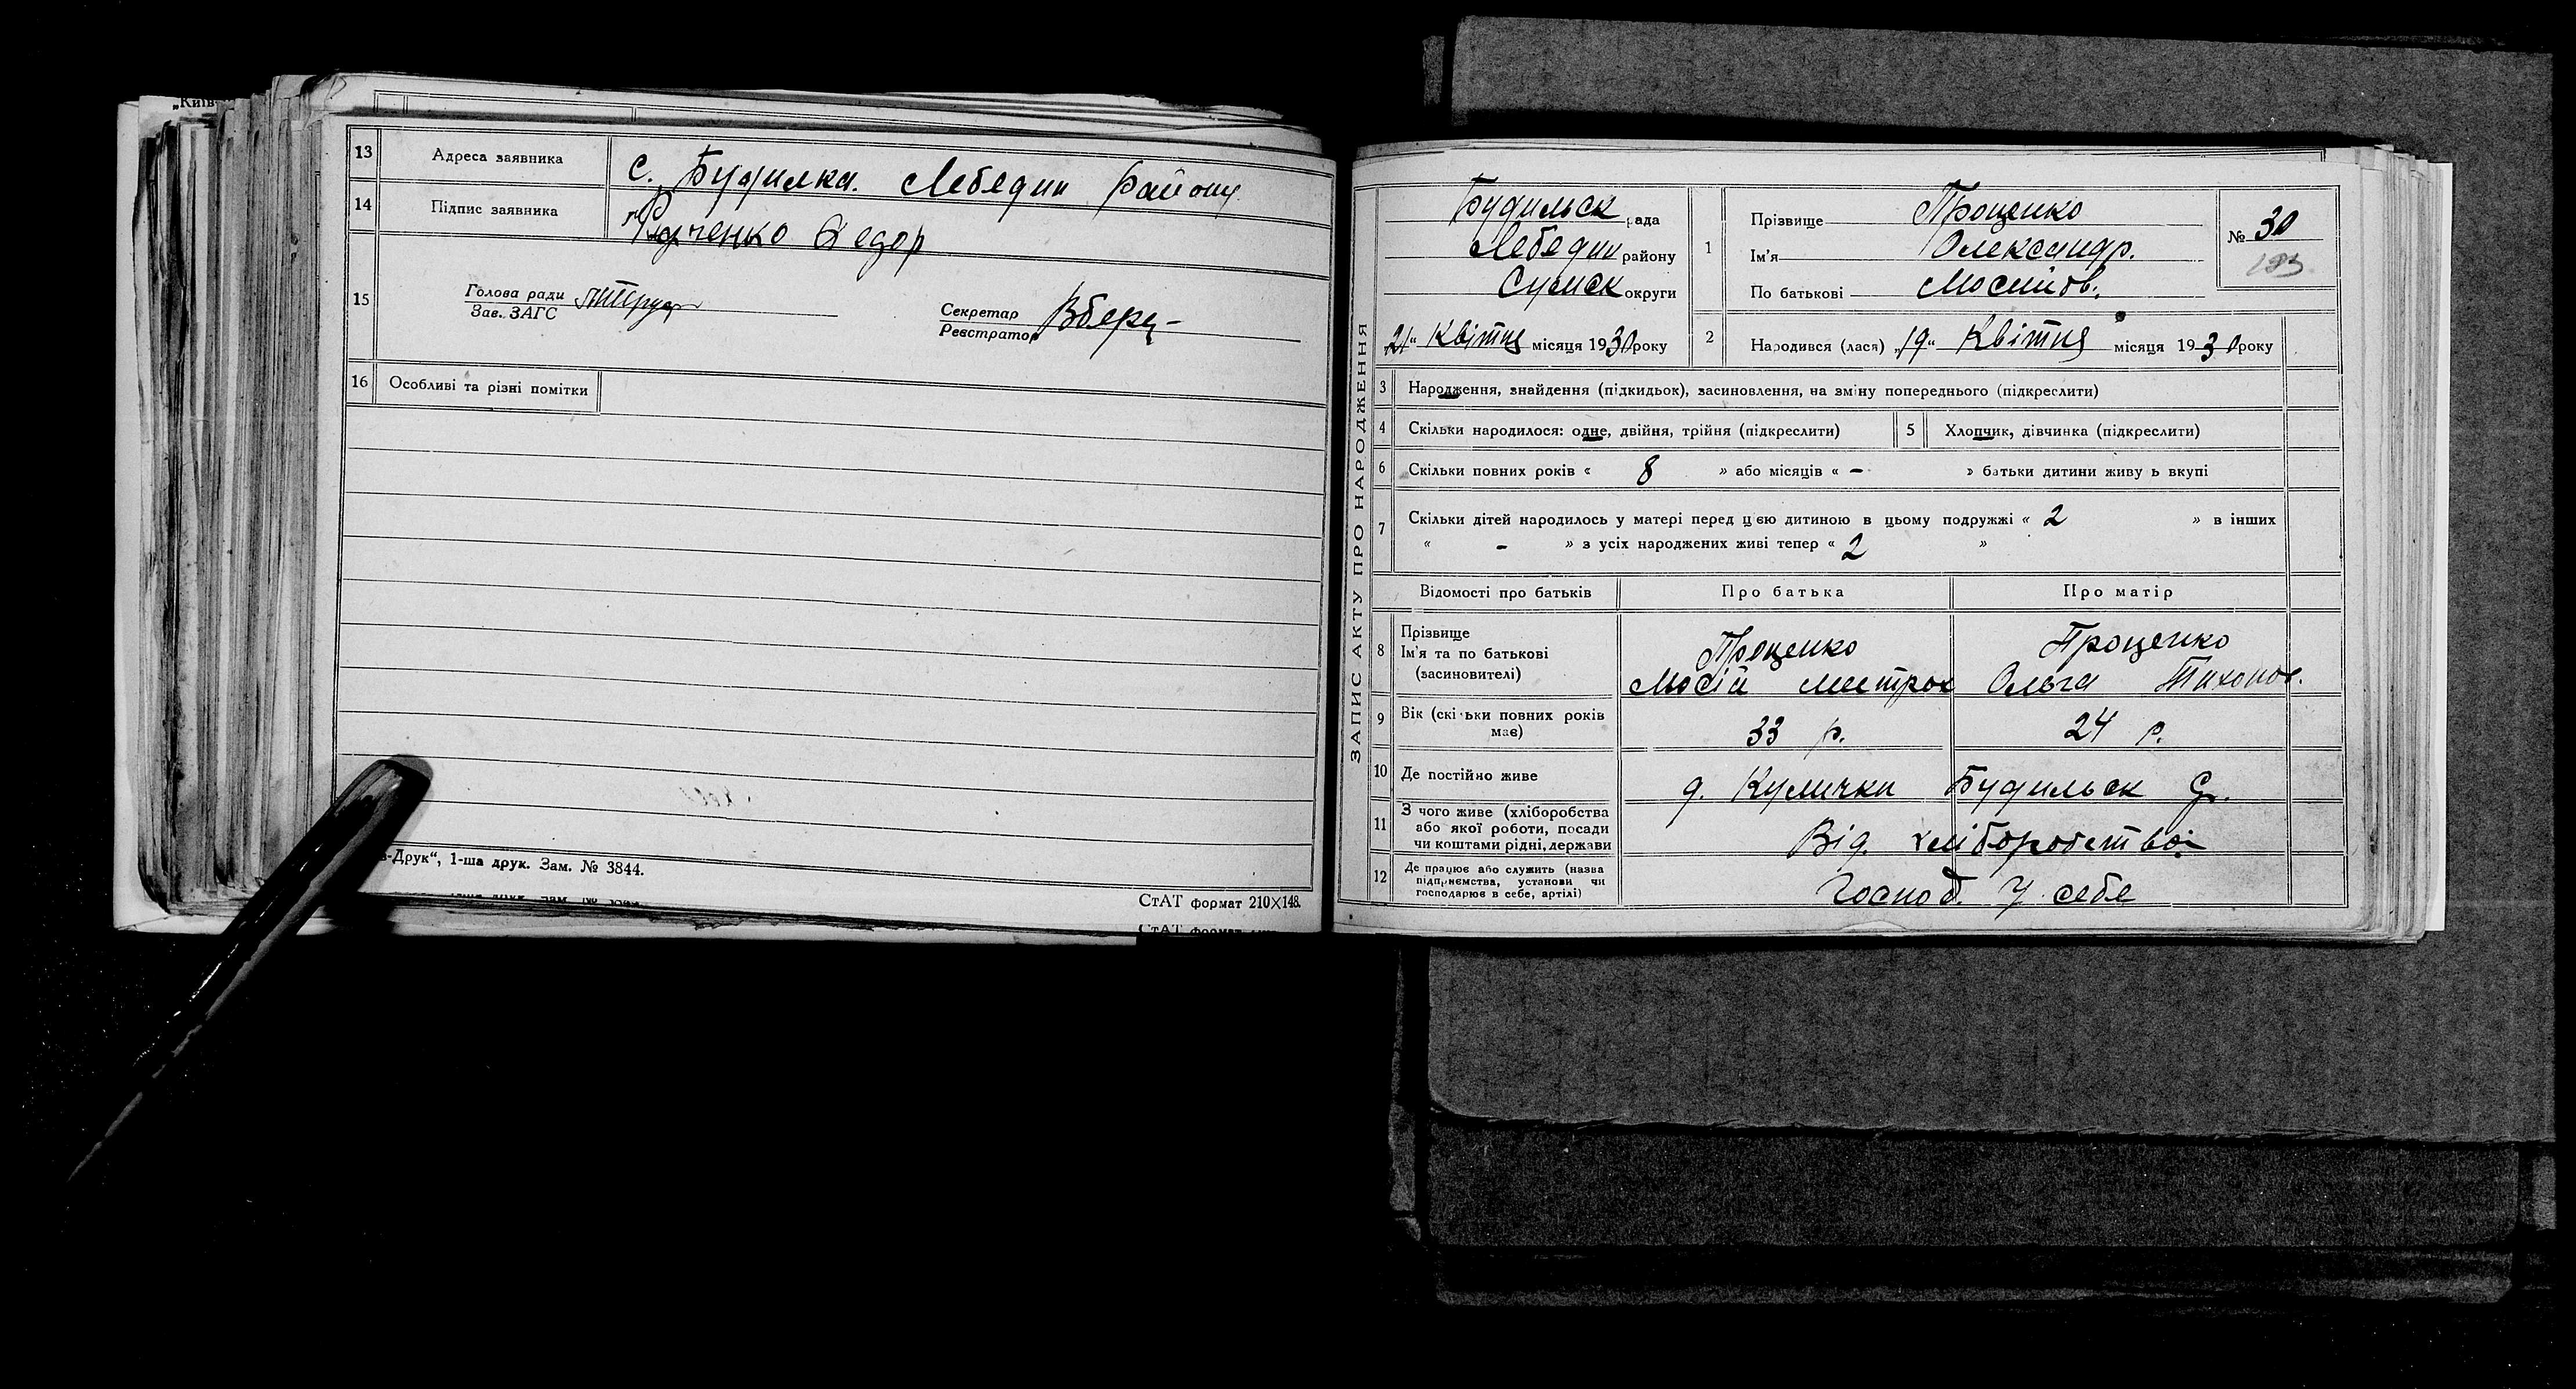 „Київ-
13 Адреса заявника с. Будилка. Лебедин району.
14 Підпис заявника Федор
15 Голова ради
Зав. ЗАГС
Секретар
Реєстратор
16 Особливі та різні помітки
в-Друк“, 1-ша друк. Зам. № 3844.
СтАТ формат 210×148.
ЗАПИС АКТУ ПРО НАРОДЖЕННЯ
Будильск рада
Лебедин району
Сумск округи
„21“ Квітня місяця 1930 року
1 Прізвище Проценко
Ім'я Олександр.
По батькові Мосийов.
№ 30
2 Народився (лася) „19“ Квітня місяця 1930 року
3 Народження, знайдення (підкидьок), засиновлення, на зміну попереднього (підкреслити)
4 Скільки народилося: одне, двійня, трійня (підкреслити) 5 Хлопчик, дівчинка (підкреслити)
6 Скільки повних років « 8 » або місяців « - » батьки дитини живу ь вкупі
7 Скільки дітей народилось у матері перед цєю дитиною в цьому подружжі « 2 » в інших
« - » з усіх народжених живі тепер « 2 »
Відомості про батьків Про батька Про матір
8 Прізвище
Ім'я та по батькові
(засиновителі)
Проценко
Мосій Митров
Проценко
Ольга Тихонов.
9 Вік (скільки повних років має) 33 р. 24 р.
10 Де постійно живе д. Кулички Будильск С/р.
11 З чого живе (хліборобства
або якої роботи, посади
чи коштами рідні, держави
Від хліборобства
12 Де працює або служить (назва
підприємства, установи чи
господарює в себе, артілі)
Господ. У себе